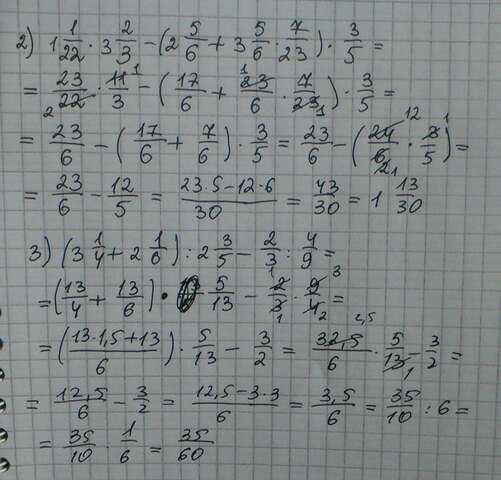 2) 1 1/22 · 3 2/3 − (2 5/6 + 3 5/6 · 7/23) · 3/5 =
= 23/22 2 · 11 1/3 − (17/6 + 23 1/6 · 7/23 1) · 3/5 =
= 23/6 − (17/6 + 7/6) · 3/5 = 23/6 − (24 12/6 2 1 · 3 1/5) =
= 23/6 − 12/5 = 23·5−12·6/30 = 43/30 = 1 13/30
3) (3 1/4 + 2 1/6) : 2 3/5 − 2/3 : 4/9 =
= (13/4 + 13/6) · 5/13 − 2 1/3 1 · 9 3/4 2 =
= (13·1,5+13/6) · 5/13 − 3/2 = 32,5 2,5/6 · 5/13 1 − 3/2 =
= 12,5/6 − 3/2 = 12,5−3·3/6 = 3,5/6 = 35/10 : 6 =
= 35/10 · 1/6 = 35/60